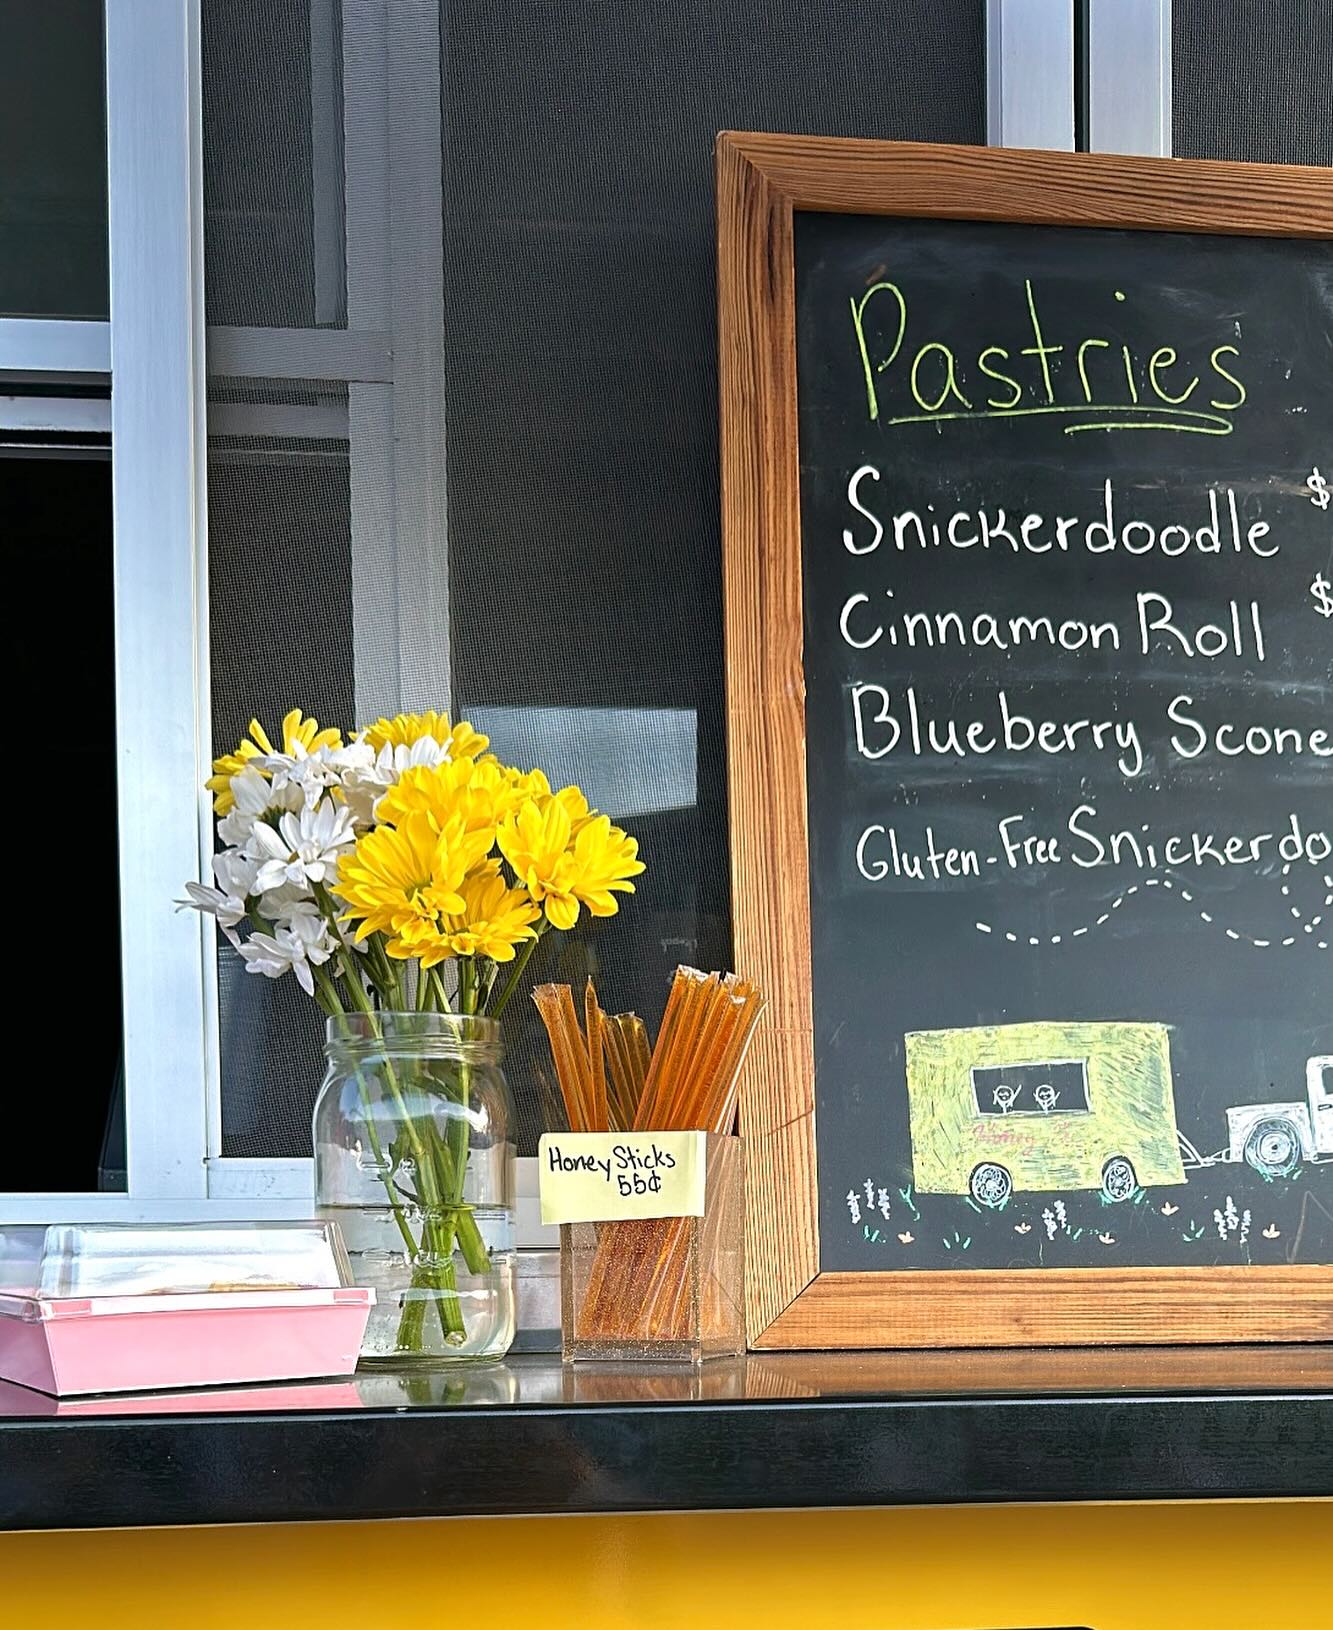 Pastries
Snickerdoodle $
Cinnamon Roll $
Blueberry Scone
Gluten-Free Snickerdo
Honey
Honey Sticks
55¢